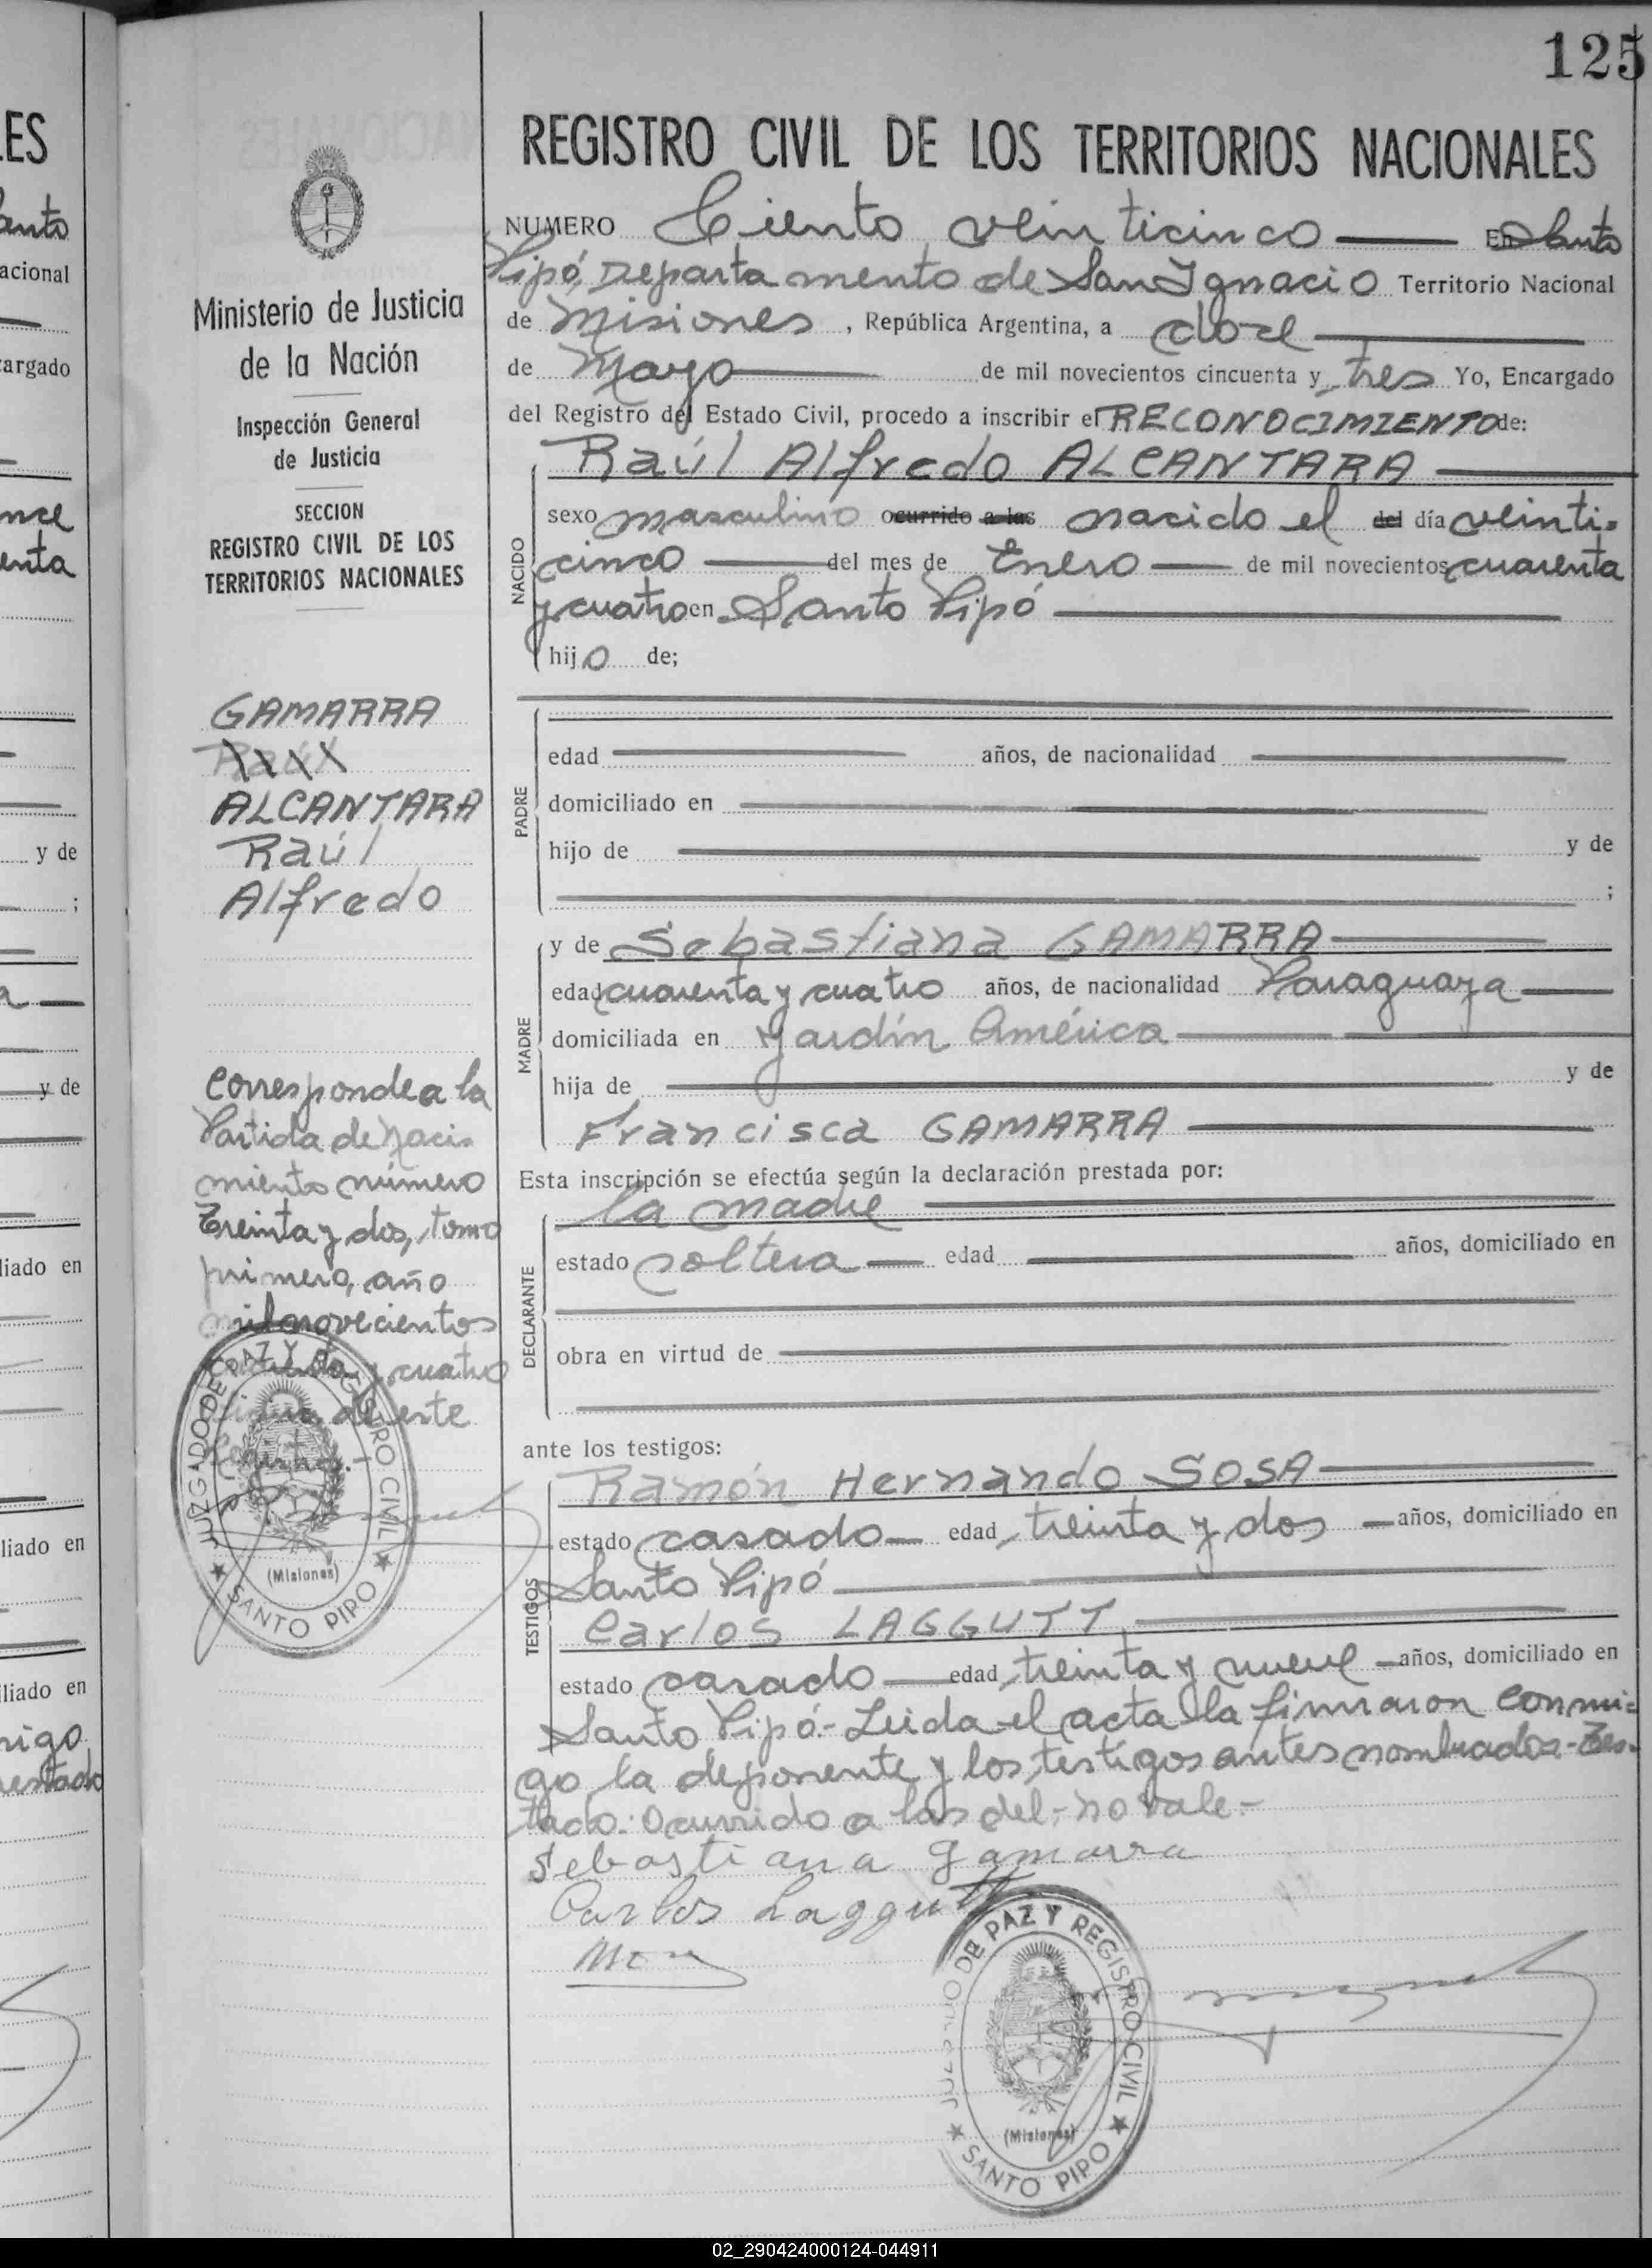 125
REGISTRO CIVIL DE LOS TERRITORIOS NACIONALES
NUMERO Ciento veinticinco En Santo
Pipó, Departamento de San Ignacio Territorio Nacional
de Misiones, República Argentina, a doce
de Mayo de mil novecientos cincuenta y tres Yo, Encargado
del Registro del Estado Civil, procedo a inscribir el RECONOCIMIENTO de:
Raúl Alfredo ALCANTARA
NACIDO
sexo masculino ocurrido a las nacido el del día veinti-
cinco del mes de Enero de mil novecientos cuarenta
y cuatro en Santo Pipó
hijo de;
PADRE
edad años, de nacionalidad
domiciliado en
hijo de y de
;
MADRE
y de Sebastiana GAMARRA
edad cuarenta y cuatro años, de nacionalidad Paraguaya
domiciliada en Jardín América
hija de y de
Francisca GAMARRA
Esta inscripción se efectúa según la declaración prestada por:
DECLARANTE
la madre
estado soltera edad años, domiciliado en
obra en virtud de
ante los testigos:
TESTIGOS
Ramón Hernando SOSA
estado casado edad treinta y dos años, domiciliado en
Santo Pipó
Carlos LAGGUTT
estado casado edad treinta y nueve años, domiciliado en
Santo Pipó.- Leida el acta la firmaron conmi=
go la deponente y los testigos antes nombrados- Tes-
tado: Ocurrido a las del- no vale.-
Sebastiana Gamarra
Carlos Laggutt
DE PAZ Y REGISTRO CIVIL
(Misiones)
★ SANTO PIPO ★
Ministerio de Justicia
de la Nación
Inspección General
de Justicia
SECCION
REGISTRO CIVIL DE LOS
TERRITORIOS NACIONALES
GAMARRA
ALCANTARA
Raúl
Alfredo
Corresponde a la
Partida de Naci-
miento número
Treinta y dos, tomo
primero, año
mil novecientos
cuarenta y cuatro
de este
JUZGADO DE PAZ Y REGISTRO CIVIL
(Misiones)
★ SANTO PIPO ★
LES
Santo
acional
cargado
nce
enta
y de
;
y de
liado en
liado en
liado en
migo
estado
02_290424000124-044911